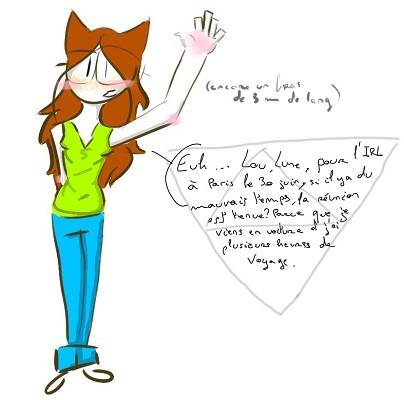 (encore un bras
de 3 m de long)
Euh... Lou, Lune, pour l'IRL
à Paris le 30 juin, si il y a du
mauvais temps, la réunion
est tenue? Parce que je
viens en voiture et j'ai
plusieurs heures de
voyage.